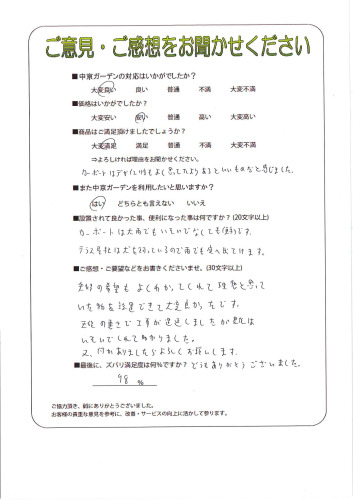 ご意見・ご感想をお聞かせください
■中京ガーデンの対応はいかがでしたか？
大変良い 良い 普通 不満 大変不満
■価格はいかがでしたか？
大変安い 安い 普通 高い 大変高い
■商品はご満足頂けましたでしょうか？
大変満足 満足 普通 不満 大変不満
⇒よろしければ理由をお聞かせください。
カーポートはデザイン性もよく思ってたよりあるといいものだと感じました。
■また中京ガーデンを利用したいと思いますか？
はい どちらとも言えない いいえ
■設置されて良かった事、便利になった事は何ですか？ (20文字以上)
カーポートは大雨でもいそいでなくても便利です。
テラス屋根は犬を っているので雨でも 出てけます。
■ご感想・ご要望などをお書きくださいませ。(30文字以上)
の希望も よくわかってくれて 理想と思って
いた物を設置できて大変良かったです。
の で工事が遅延しましたが
いそいでくれて助かりました。
又、何かありましたらよろしくお願いします。
■最後に、ズバリ満足度は何％ですか？ どうもありがとうございました。
98 %
ご協力頂き、誠にありがとうございました。
お客様の貴重な意見を参考に、改善・サービスの向上に活かして参ります。